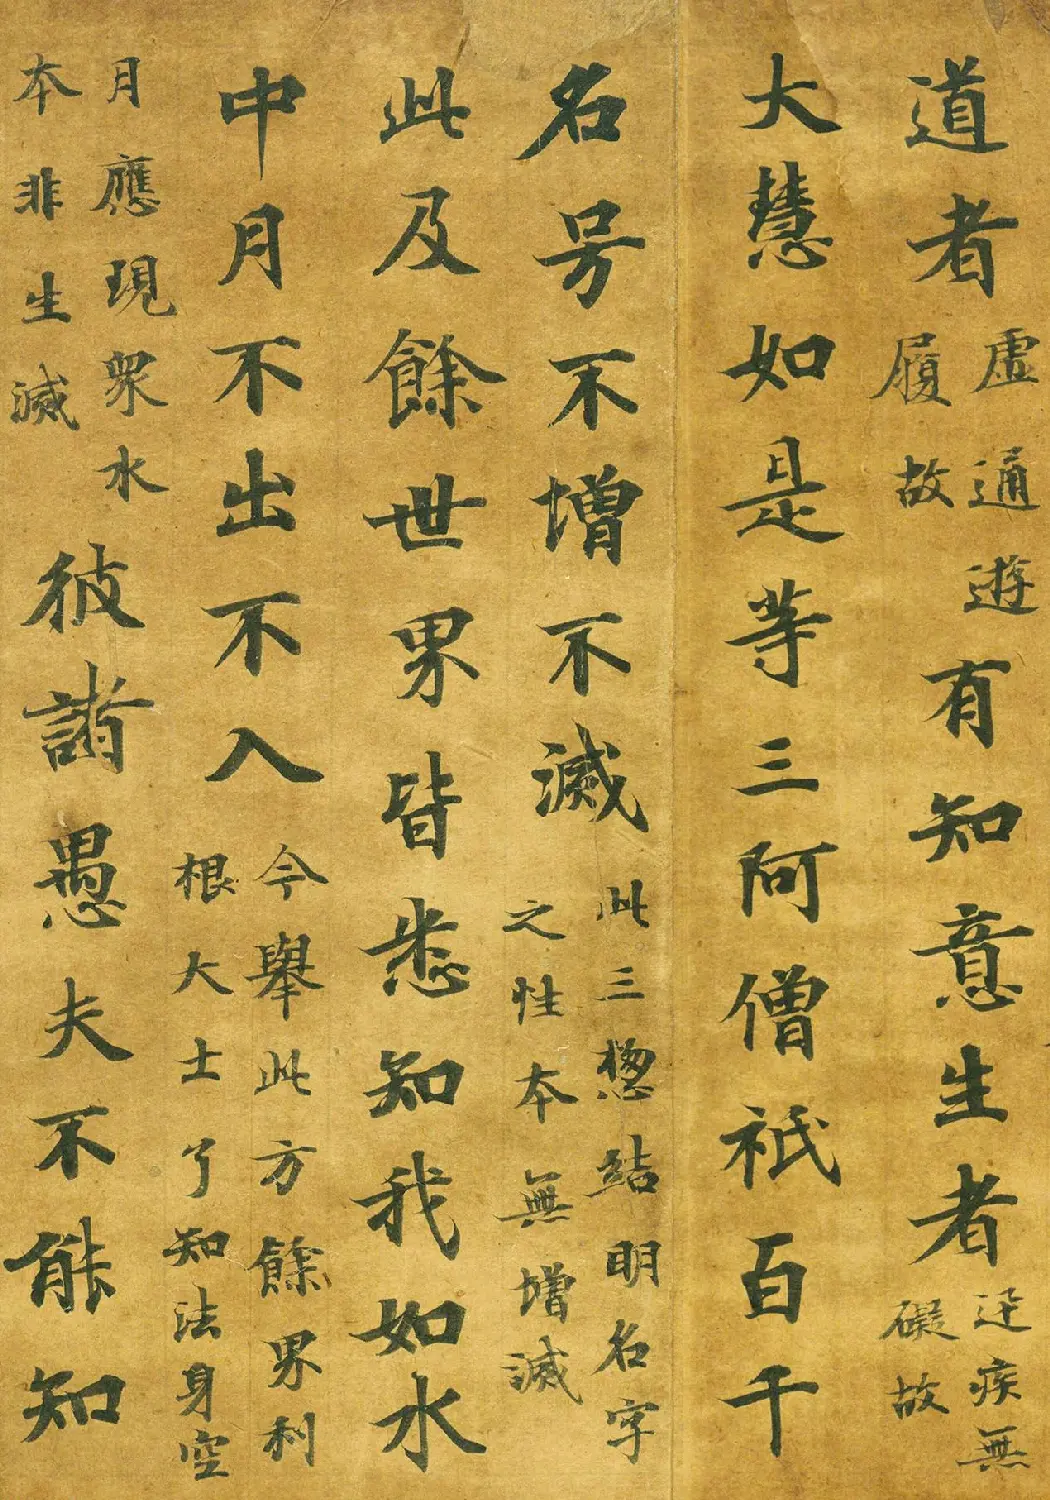 道者虛通遊履故有知意生者迅疾無礙故
大慧如是等三阿僧祇百千
名号不增不滅此三揔結明名字之性本無增滅
此及餘世界皆悉知我如水
中月不出不入今舉此方餘界利根大士了知法身空
月應現衆水本非生滅彼諸愚夫不能知